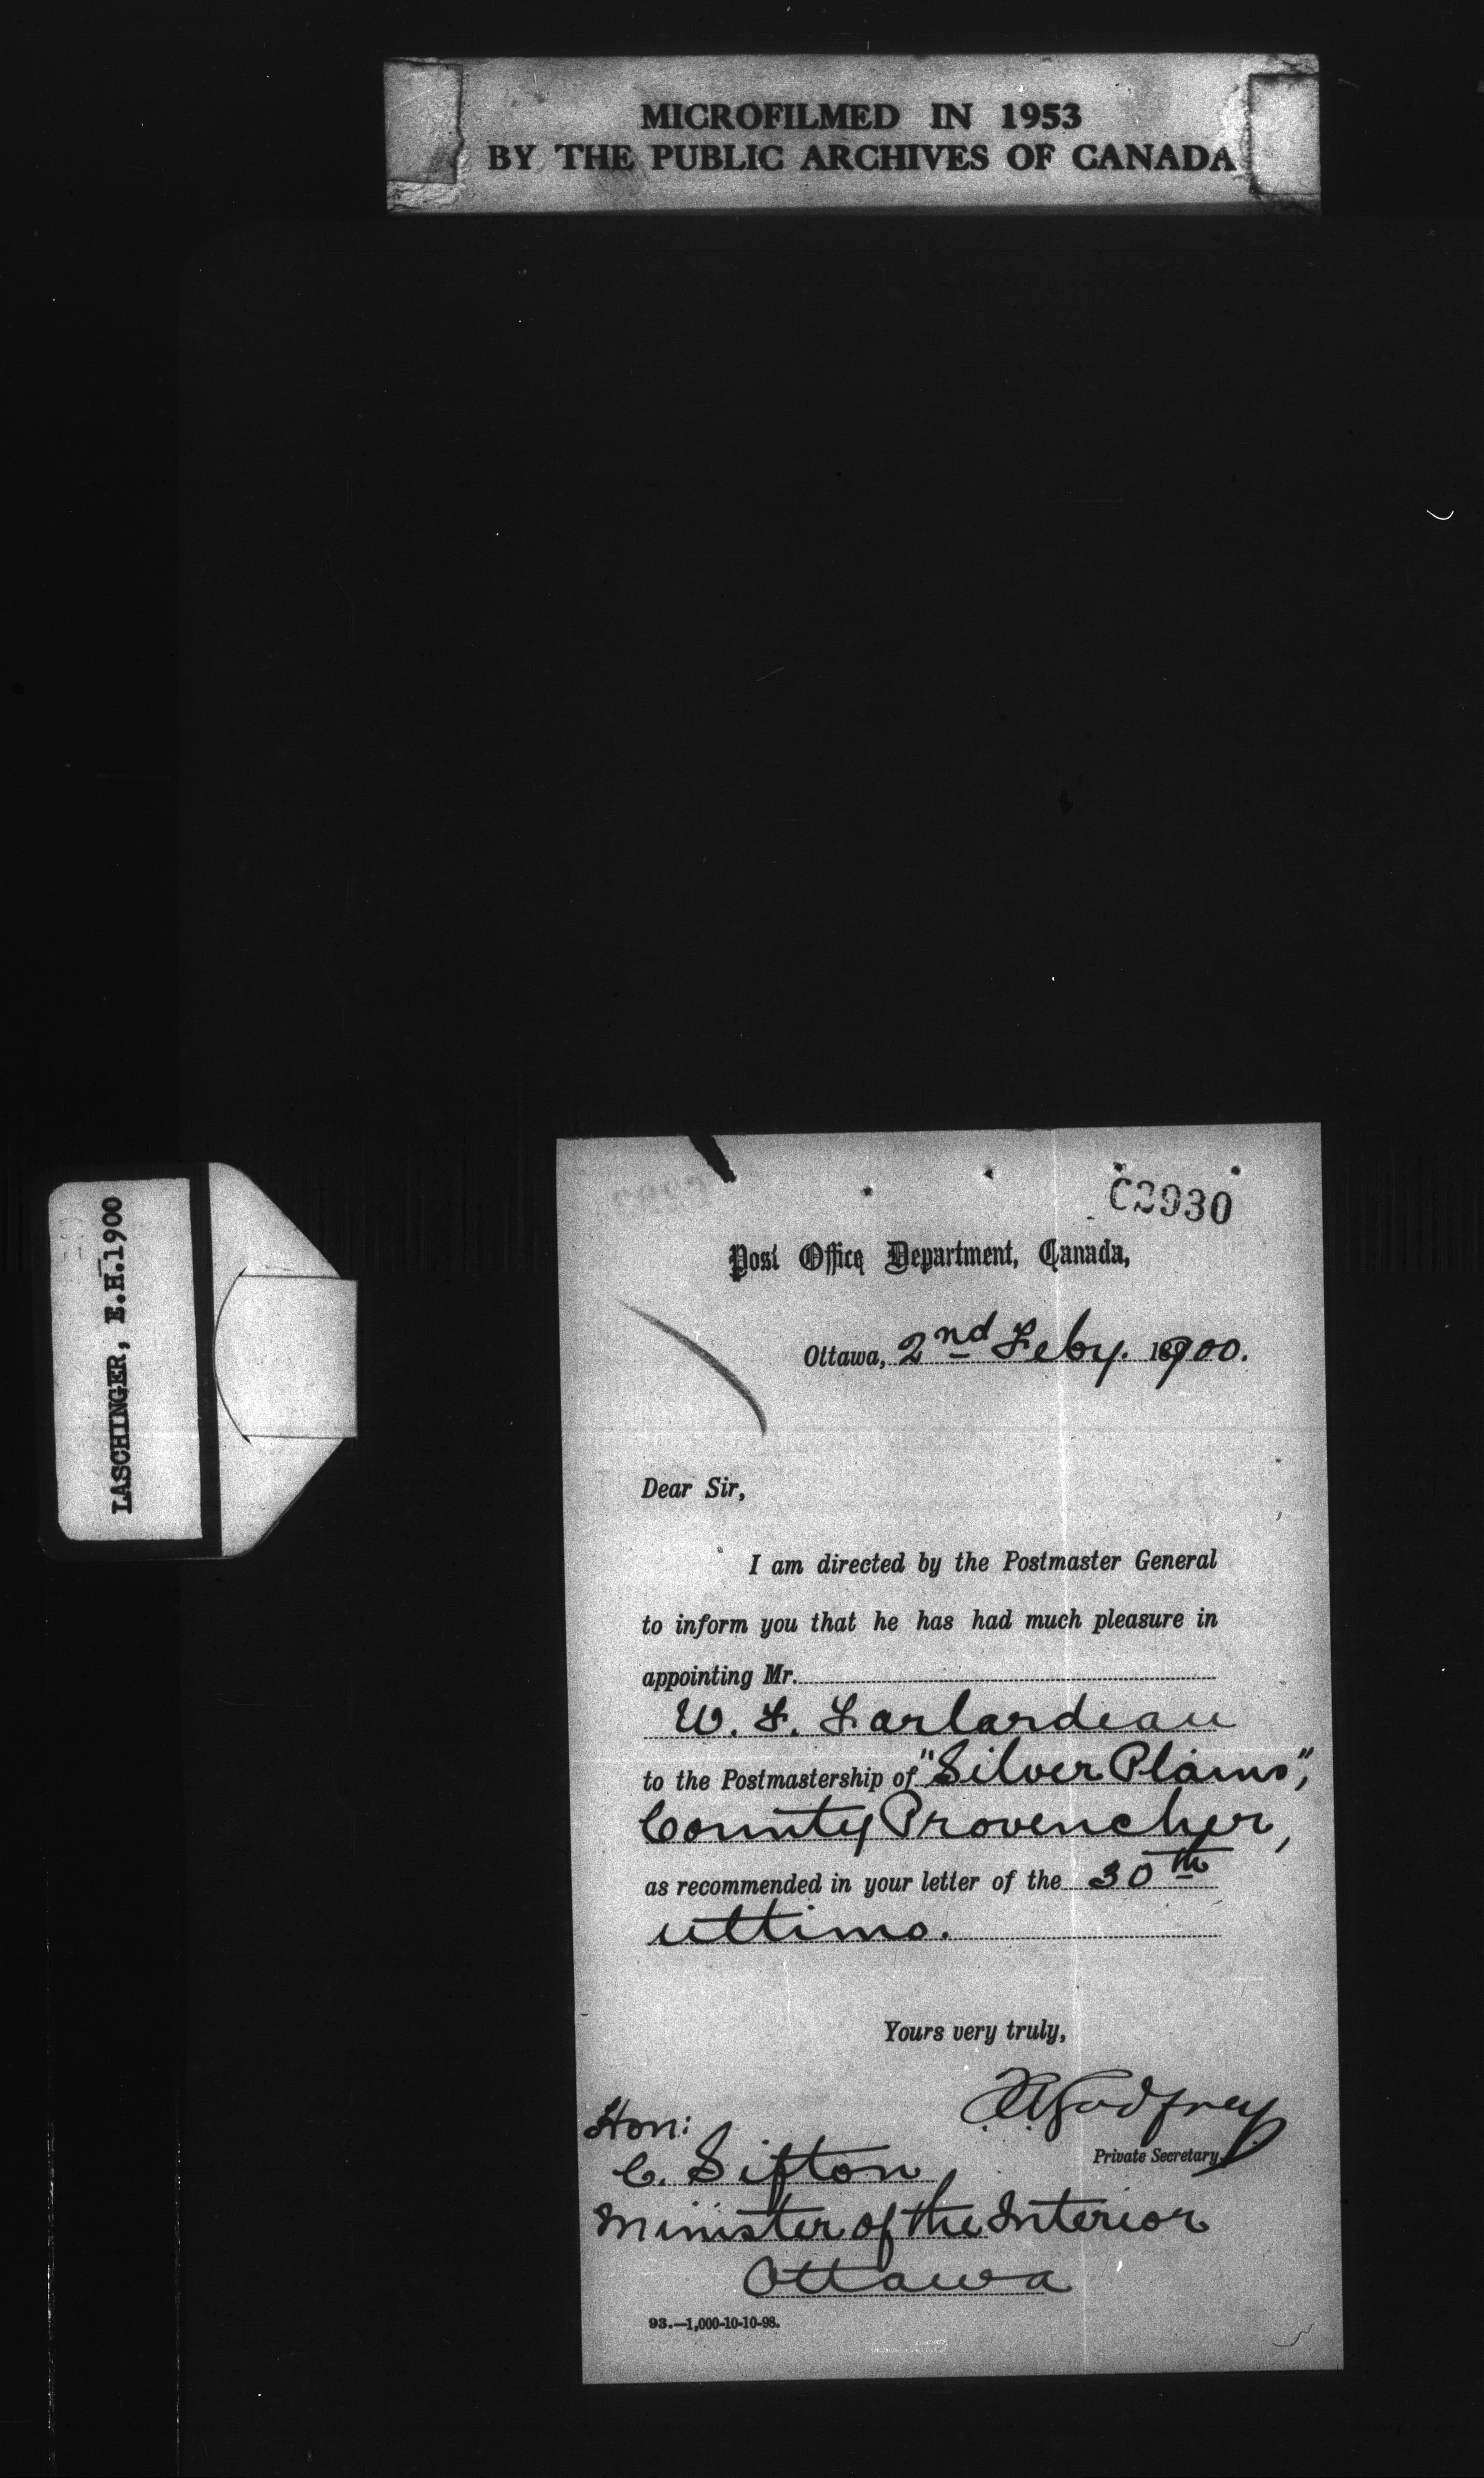 MICROFILMED IN 1953
BY THE PUBLIC ARCHIVES OF CANADA
LASCHINGER, E.H. 1900
C2930
Post Office Department, Canada,
Ottawa, 2nd Feby. 1900.
Dear Sir,
I am directed by the Postmaster General
to inform you that he has had much pleasure in
appointing Mr.
W. F. Farlardeau
to the Postmastership of "Silver Plains",
County Provencher,
as recommended in your letter of the 30th
ultimo.
Yours very truly,
Godfrey
Private Secretary.
Hon:
C. Sifton
Minister of the Interior
Ottawa
93.—1,000-10-10-98.